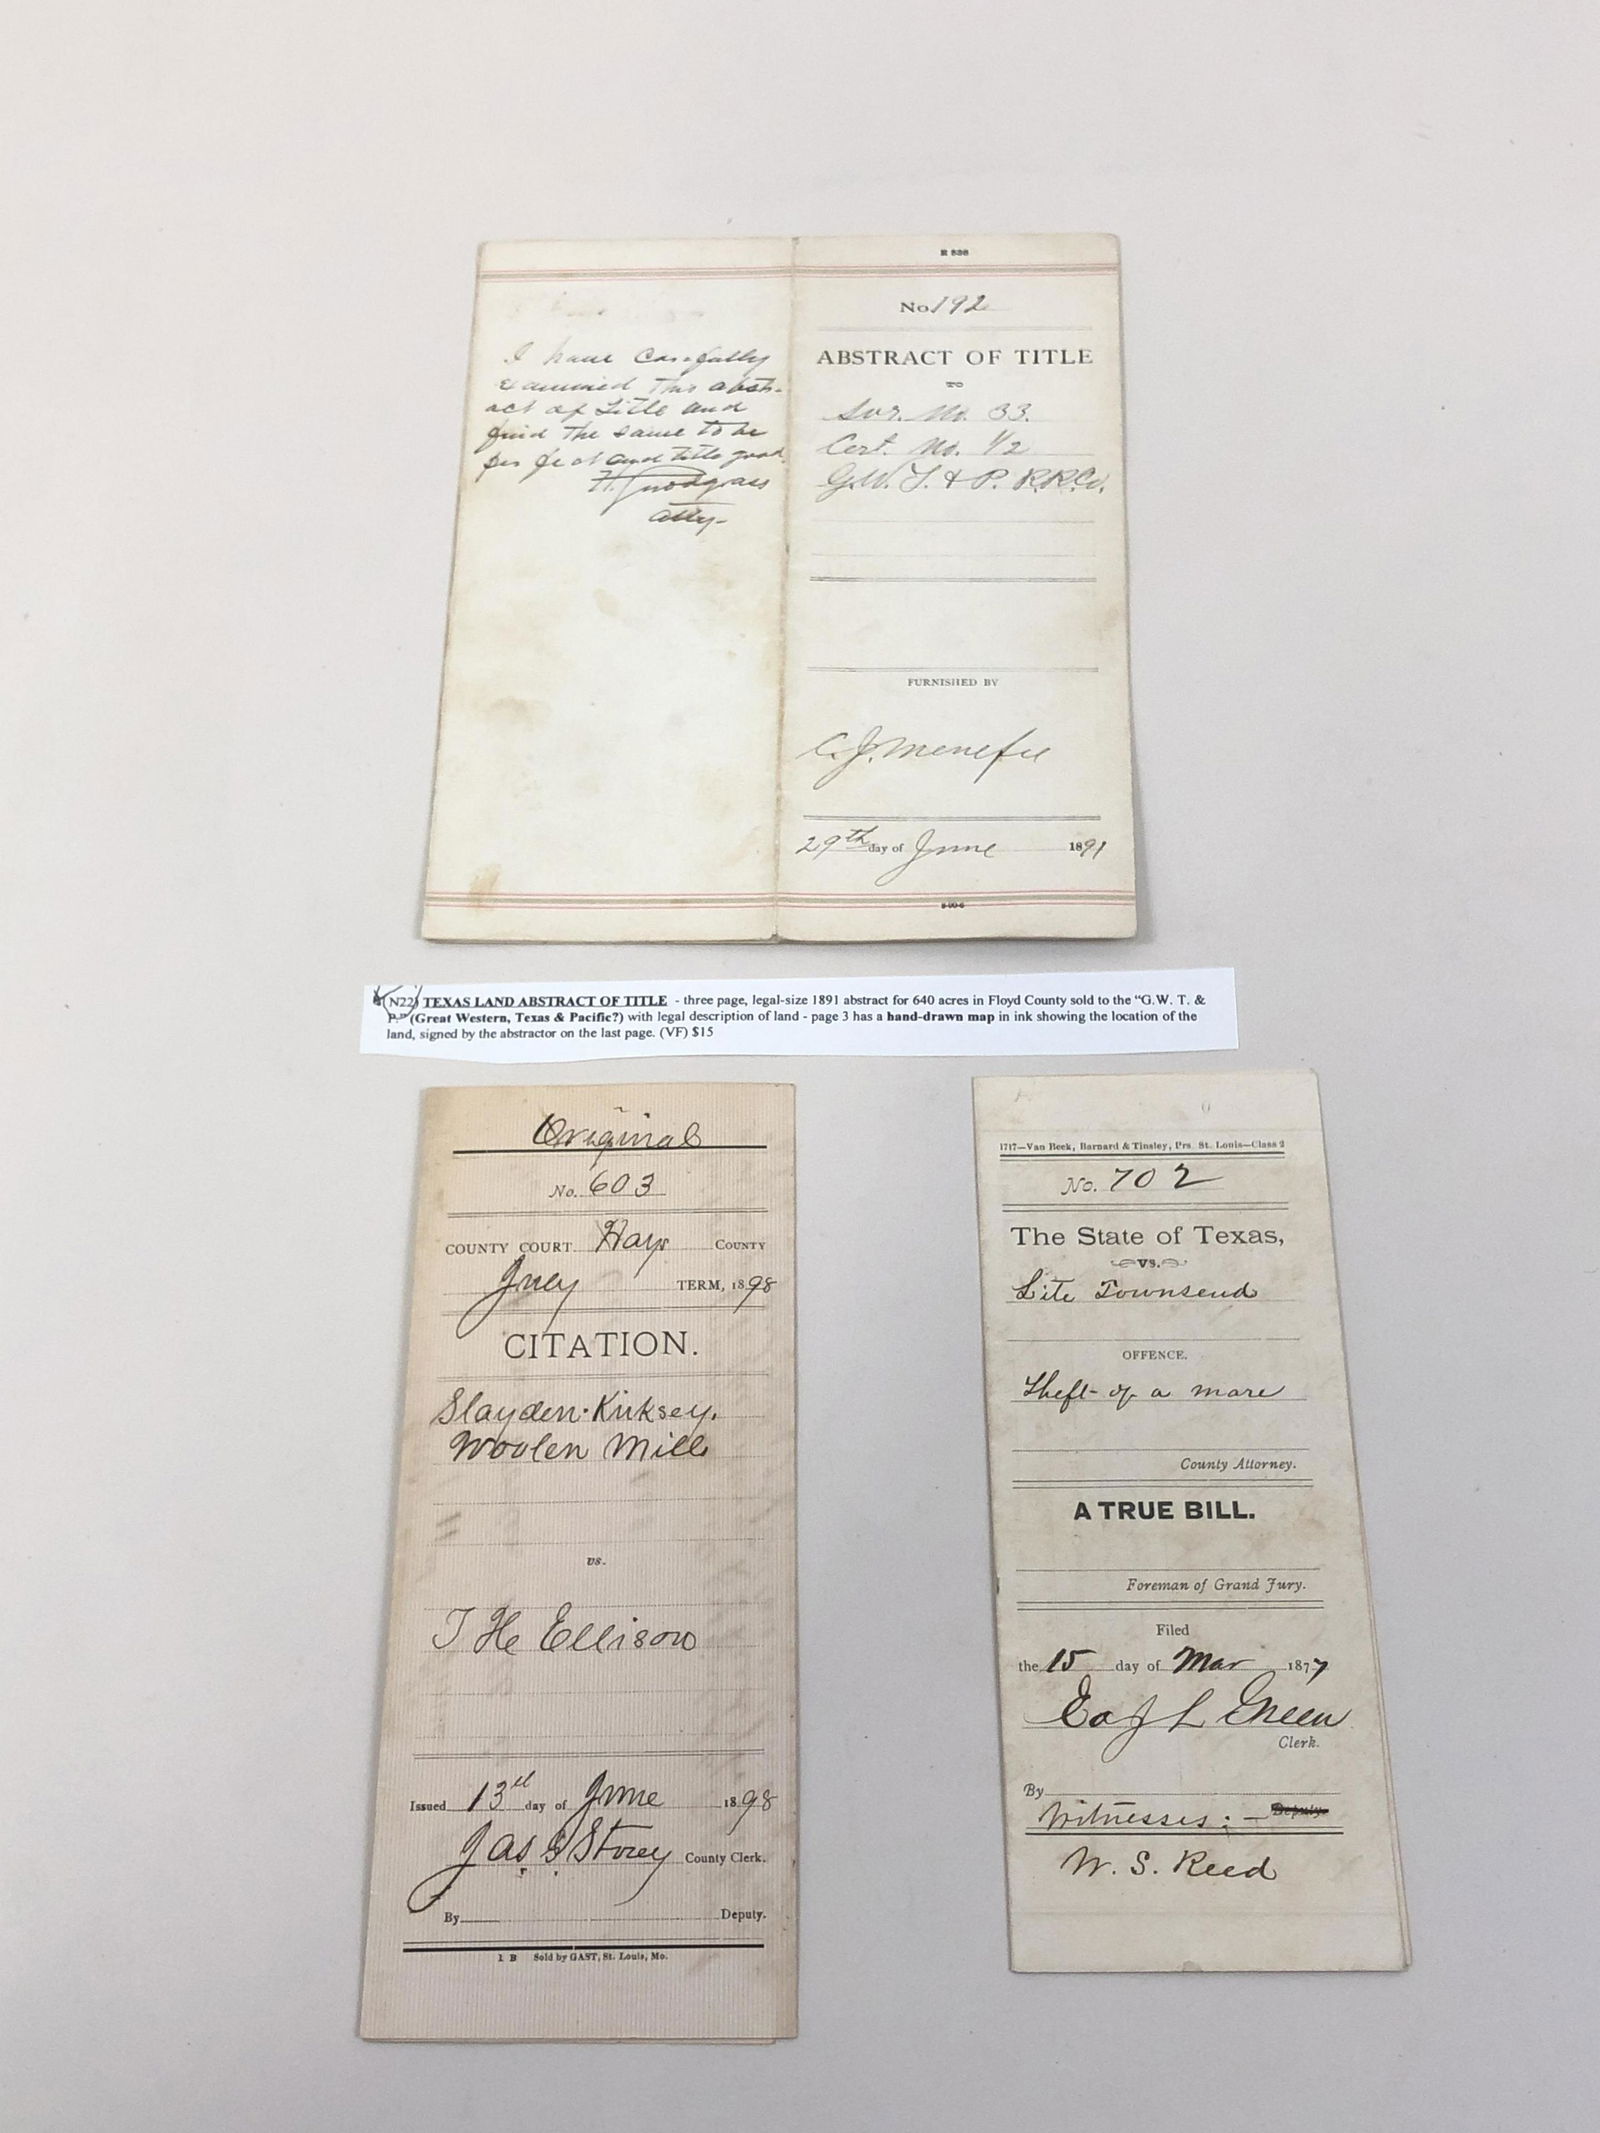 I have carefully
examined this abstr-
act of Title and
find the same to be
perfect and title good.
Atty-
R 838
No. 192
ABSTRACT OF TITLE
TO
Sur. No. 33.
Cert. No. 1/2
G.W. T. & P. R.R.Co.
FURNISHED BY
C. J. Menefee
29th day of June 1891
(N22) TEXAS LAND ABSTRACT OF TITLE - three page, legal-size 1891 abstract for 640 acres in Floyd County sold to the “G.W. T. &
P.” (Great Western, Texas & Pacific?) with legal description of land - page 3 has a hand-drawn map in ink showing the location of the
land, signed by the abstractor on the last page. (VF) $15
Original
No. 603
COUNTY COURT Hays COUNTY
TERM, 1898
CITATION.
Slayden-Kirksey,
Woolen Mill
vs.
T H Ellison
Issued 13th day of June 1898
Jas G Storey County Clerk.
By Deputy.
1 B Sold by GAST, St. Louis, Mo.
1717—Van Beek, Barnard & Tinsley, Prs. St. Louis—Class 2
No. 702
The State of Texas,
VS.
Lite Townsend
OFFENCE.
Theft of a mare
County Attorney.
A TRUE BILL.
Foreman of Grand Jury.
Filed
the 15 day of Mar 1877
Ed J L Green
Clerk.
By
Witnesses: — Deputy.
W. S. Reed